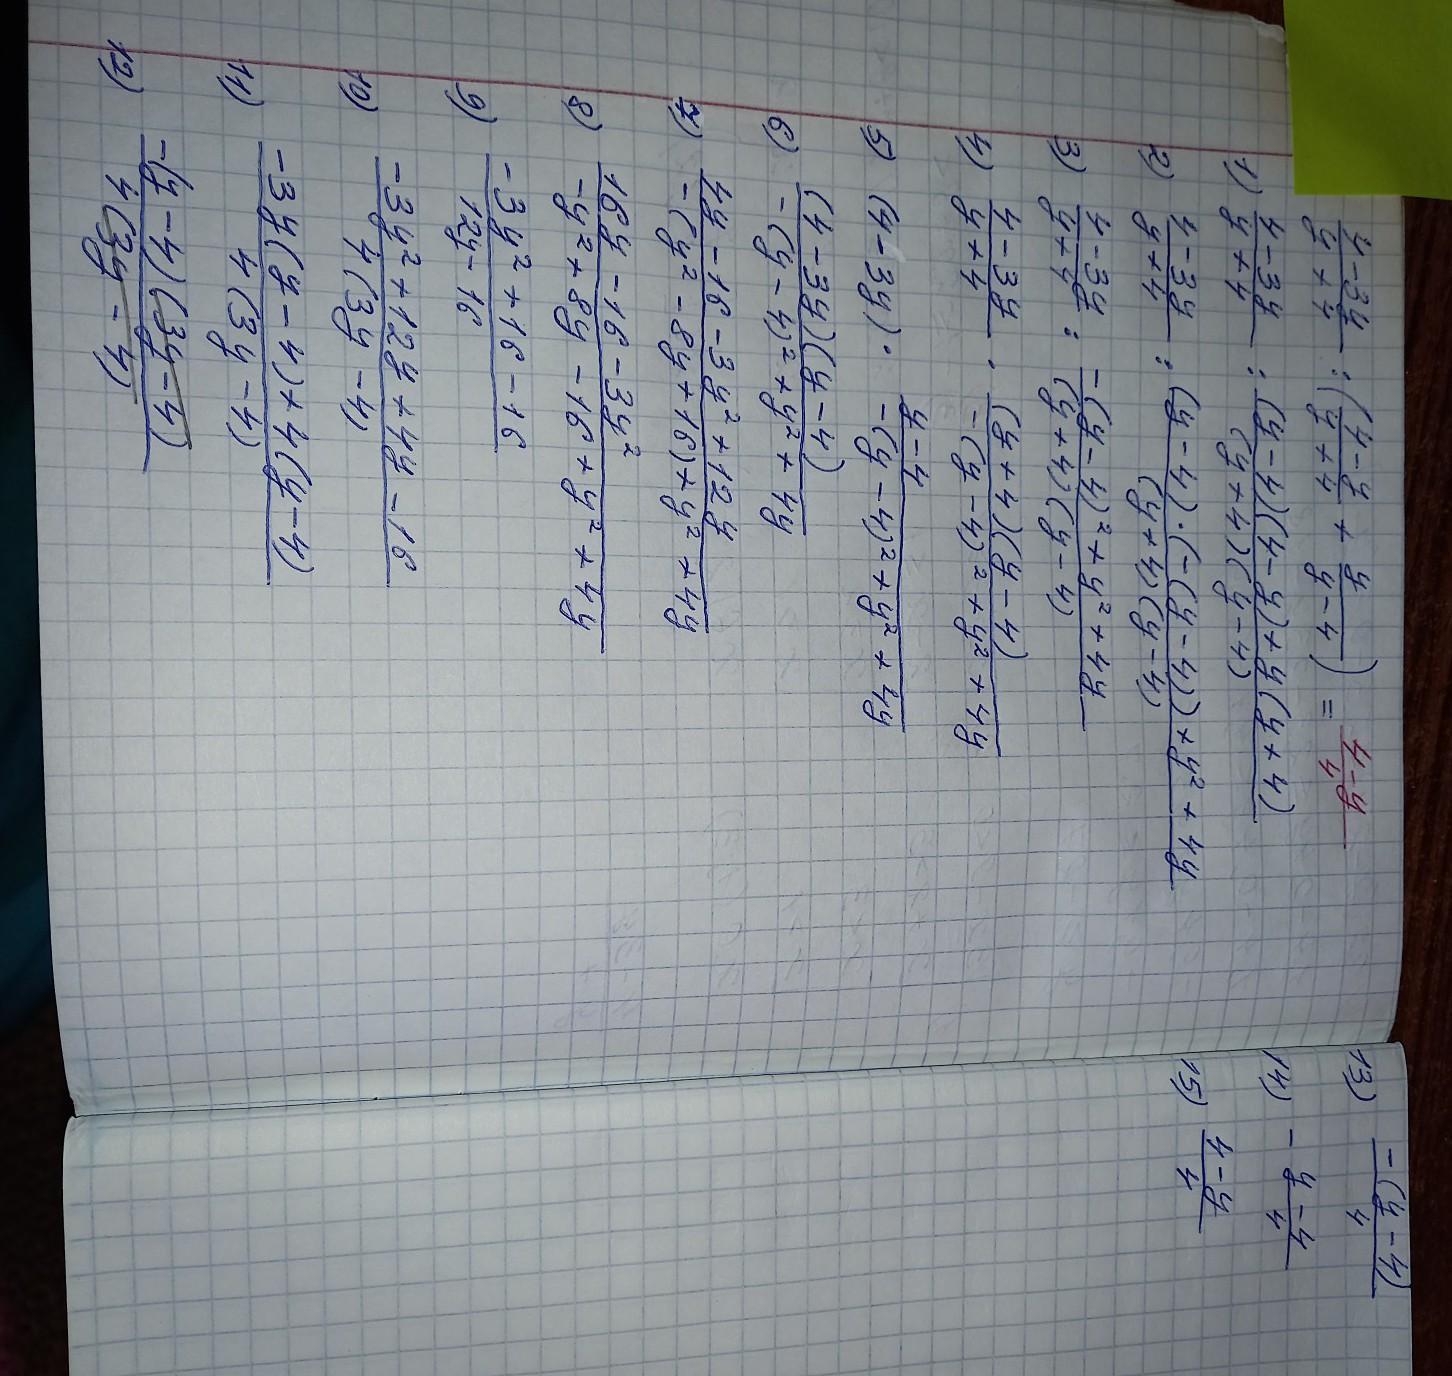 (4-3y)/(y+4) : ((4-y)/(y+4) + y/(y-4)) = (4-y)/4
1) (4-3y)/(y+4) : ((y-4)(4-y)+y(y+4))/((y+4)(y-4))
2) (4-3y)/(y+4) : ((y-4)·(-(y-4))+y²+4y)/((y+4)(y-4))
3) (4-3y)/(y+4) : (-(y-4)²+y²+4y)/((y+4)(y-4))
4) (4-3y)/(y+4) · ((y+4)(y-4))/(-(y-4)²+y²+4y)
5) (4-3y) · (y-4)/(-(y-4)²+y²+4y)
6) ((4-3y)(y-4))/(-(y-4)²+y²+4y)
7) (4y-16-3y²+12y)/(-(y²-8y+16)+y²+4y)
8) (16y-16-3y²)/(-y²+8y-16+y²+4y)
9) (-3y²+16-16)/(12y-16)
10) (-3y²+12y+4y-16)/(4(3y-4))
11) (-3y(y-4)+4(y-4))/(4(3y-4))
12) (-(y-4)(3y-4))/(4(3y-4))
13) (-(y-4))/4
14) - (y-4)/4
15) (4-y)/4